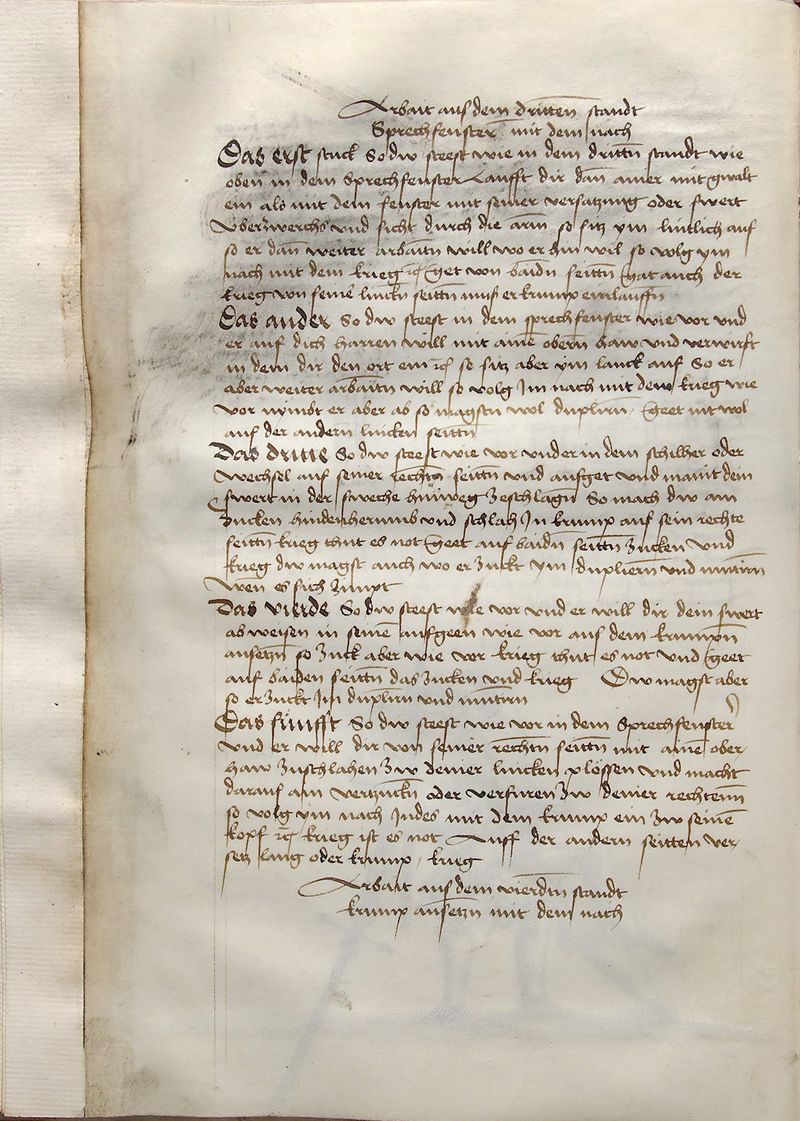 Arbait aus dem dritten standt
Sprechfenster mit dem nach
Das erst stuck So dw steest wie in dem drittn standt wie
oben in dem Sprechfenster Laufft dir dan ainer mit gwalt
ein als mit dem fenster mit seiner versatzung oder swert
Vberzwerchs vnd sicht durch die arm so sitz ym lintlich auf
so er dan weiter arbaitn will wo er hin wil so volg ym
nach mit dem krieg rc get von baidn seittn Hat auch der
krieg von seine linckn seittn mus er krump einlauffn
Das ander So dw steest in dem sprechfenster wie vor vnd
er auf dich harren will mit aine obern haw vnd verwirft
in dem dir den ort ein rc so sitz aber ym lanck auf So er
aber weiter arbaitn will so volg Im nach mit dem krieg wie
vor nymbt er aber ab so magstu wol duplirn geet nit wol
auf der andern lincken seittn
Das dritte So dw steest wie vor vnder in dem schilher oder
wechsel auf seiner rechtn seittn vnd aufget vnd maint dein
swert in der sweche hinweg zeschlagn So mach dw ain
zucken hindenherumb vnd schlah In krump auf sein rechte
seittn krieg thut es not Geet auf baidn seittn zucken vnd
krieg dw magst auch wo er zuckt ym duplieren vnd mutirn
wen es sich zimpt
Das vierde So dw steest wie vor vnd er will dir dein swert
abweisen in seine aufgeen wie vor aus dem krumpn
ansetzn so zuck aber wie vor krieg thut es not vnd Geet
auf baiden seittn das zucken vnd krieg Dw magst aber
so er zuckt Im duplirn vnd mutirn
Das funfft So dw steest wie vor in dem Sprechfenster
vnd er will dir von seiner rechtn seittn mit aine ober
haw zuschlahen zw deiner lincken plossen vnd macht
darauf ain verzuckn oder verfuren zw deiner rechtenn
so volg ym nach Indes mit dem krump ein zw seinem
kopf rc krieg ist es not Auff der andern seitten ver
setz lang oder krump krieg
Arbait aus dem vierdtn standt
krump ansetzn mit dem nach